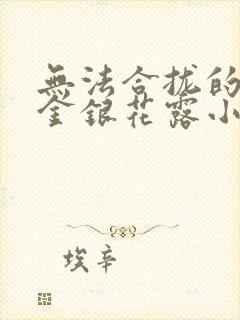 無法合拢的
金銀花露小
埃辛